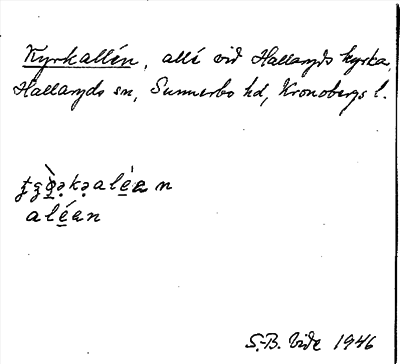 Kyrkallén, allé vid Hallaryds kyrka,
Hallaryds sn, Sunnerbo hd, Kronobergs l.
aléan
S.-B. Vide 1946